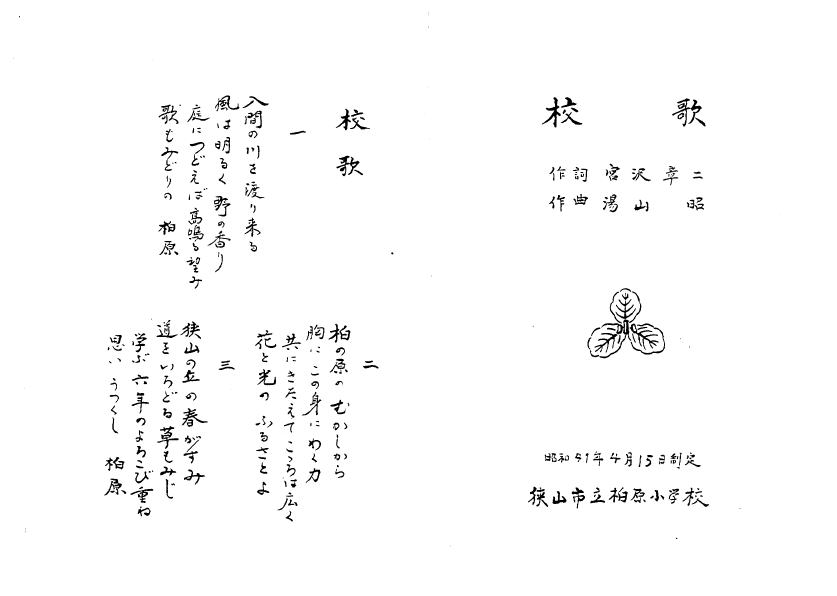 校歌
作詞 宮沢章二
作曲 湯山 昭
昭和51年4月15日制定
狭山市立柏原小学校
校歌
一
入間の川を渡り来る
風は明るく 野の香り
庭につどえば 高鳴る望み
歌もみどりの 柏原
二
柏の原の むかしから
胸に この身に わく力
共にきたえて こころは広く
花と光の ふるさとよ
三
狭山の丘の 春がすみ
道をいろどる 草もみじ
学ぶ六年の よろこび重ね
思い うつくし 柏原